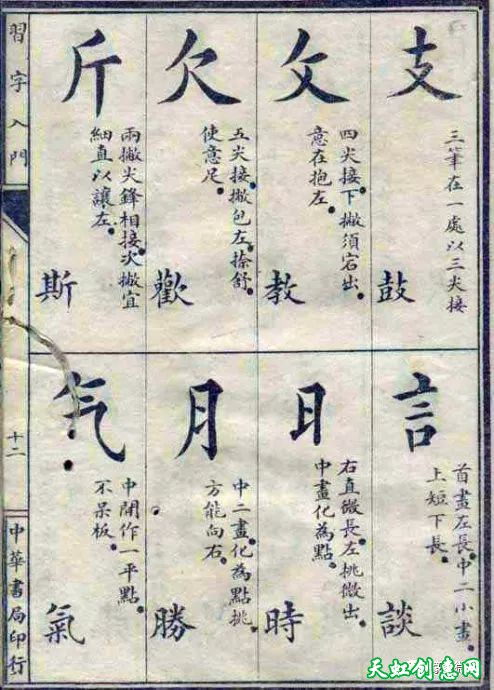 支
三筆在一處以三尖接
鼓
攵
四尖接。下撇須宕出。
意在抱左。
教
欠
五尖接。撇包左。捺舒
使意足。
歡
斤
兩撇尖鋒相接。次撇宜
細直以讓左。
斯
言
首畫左長。中二小畫。
上短下長。
談
日
右直微長。左挑微出。
中畫化為點。
時
月
中二畫。化為點挑。
方能向右。
勝
气
中開作一平點。
不呆板。
氣
習字入門
十二
中華書局印行
天虹创意网